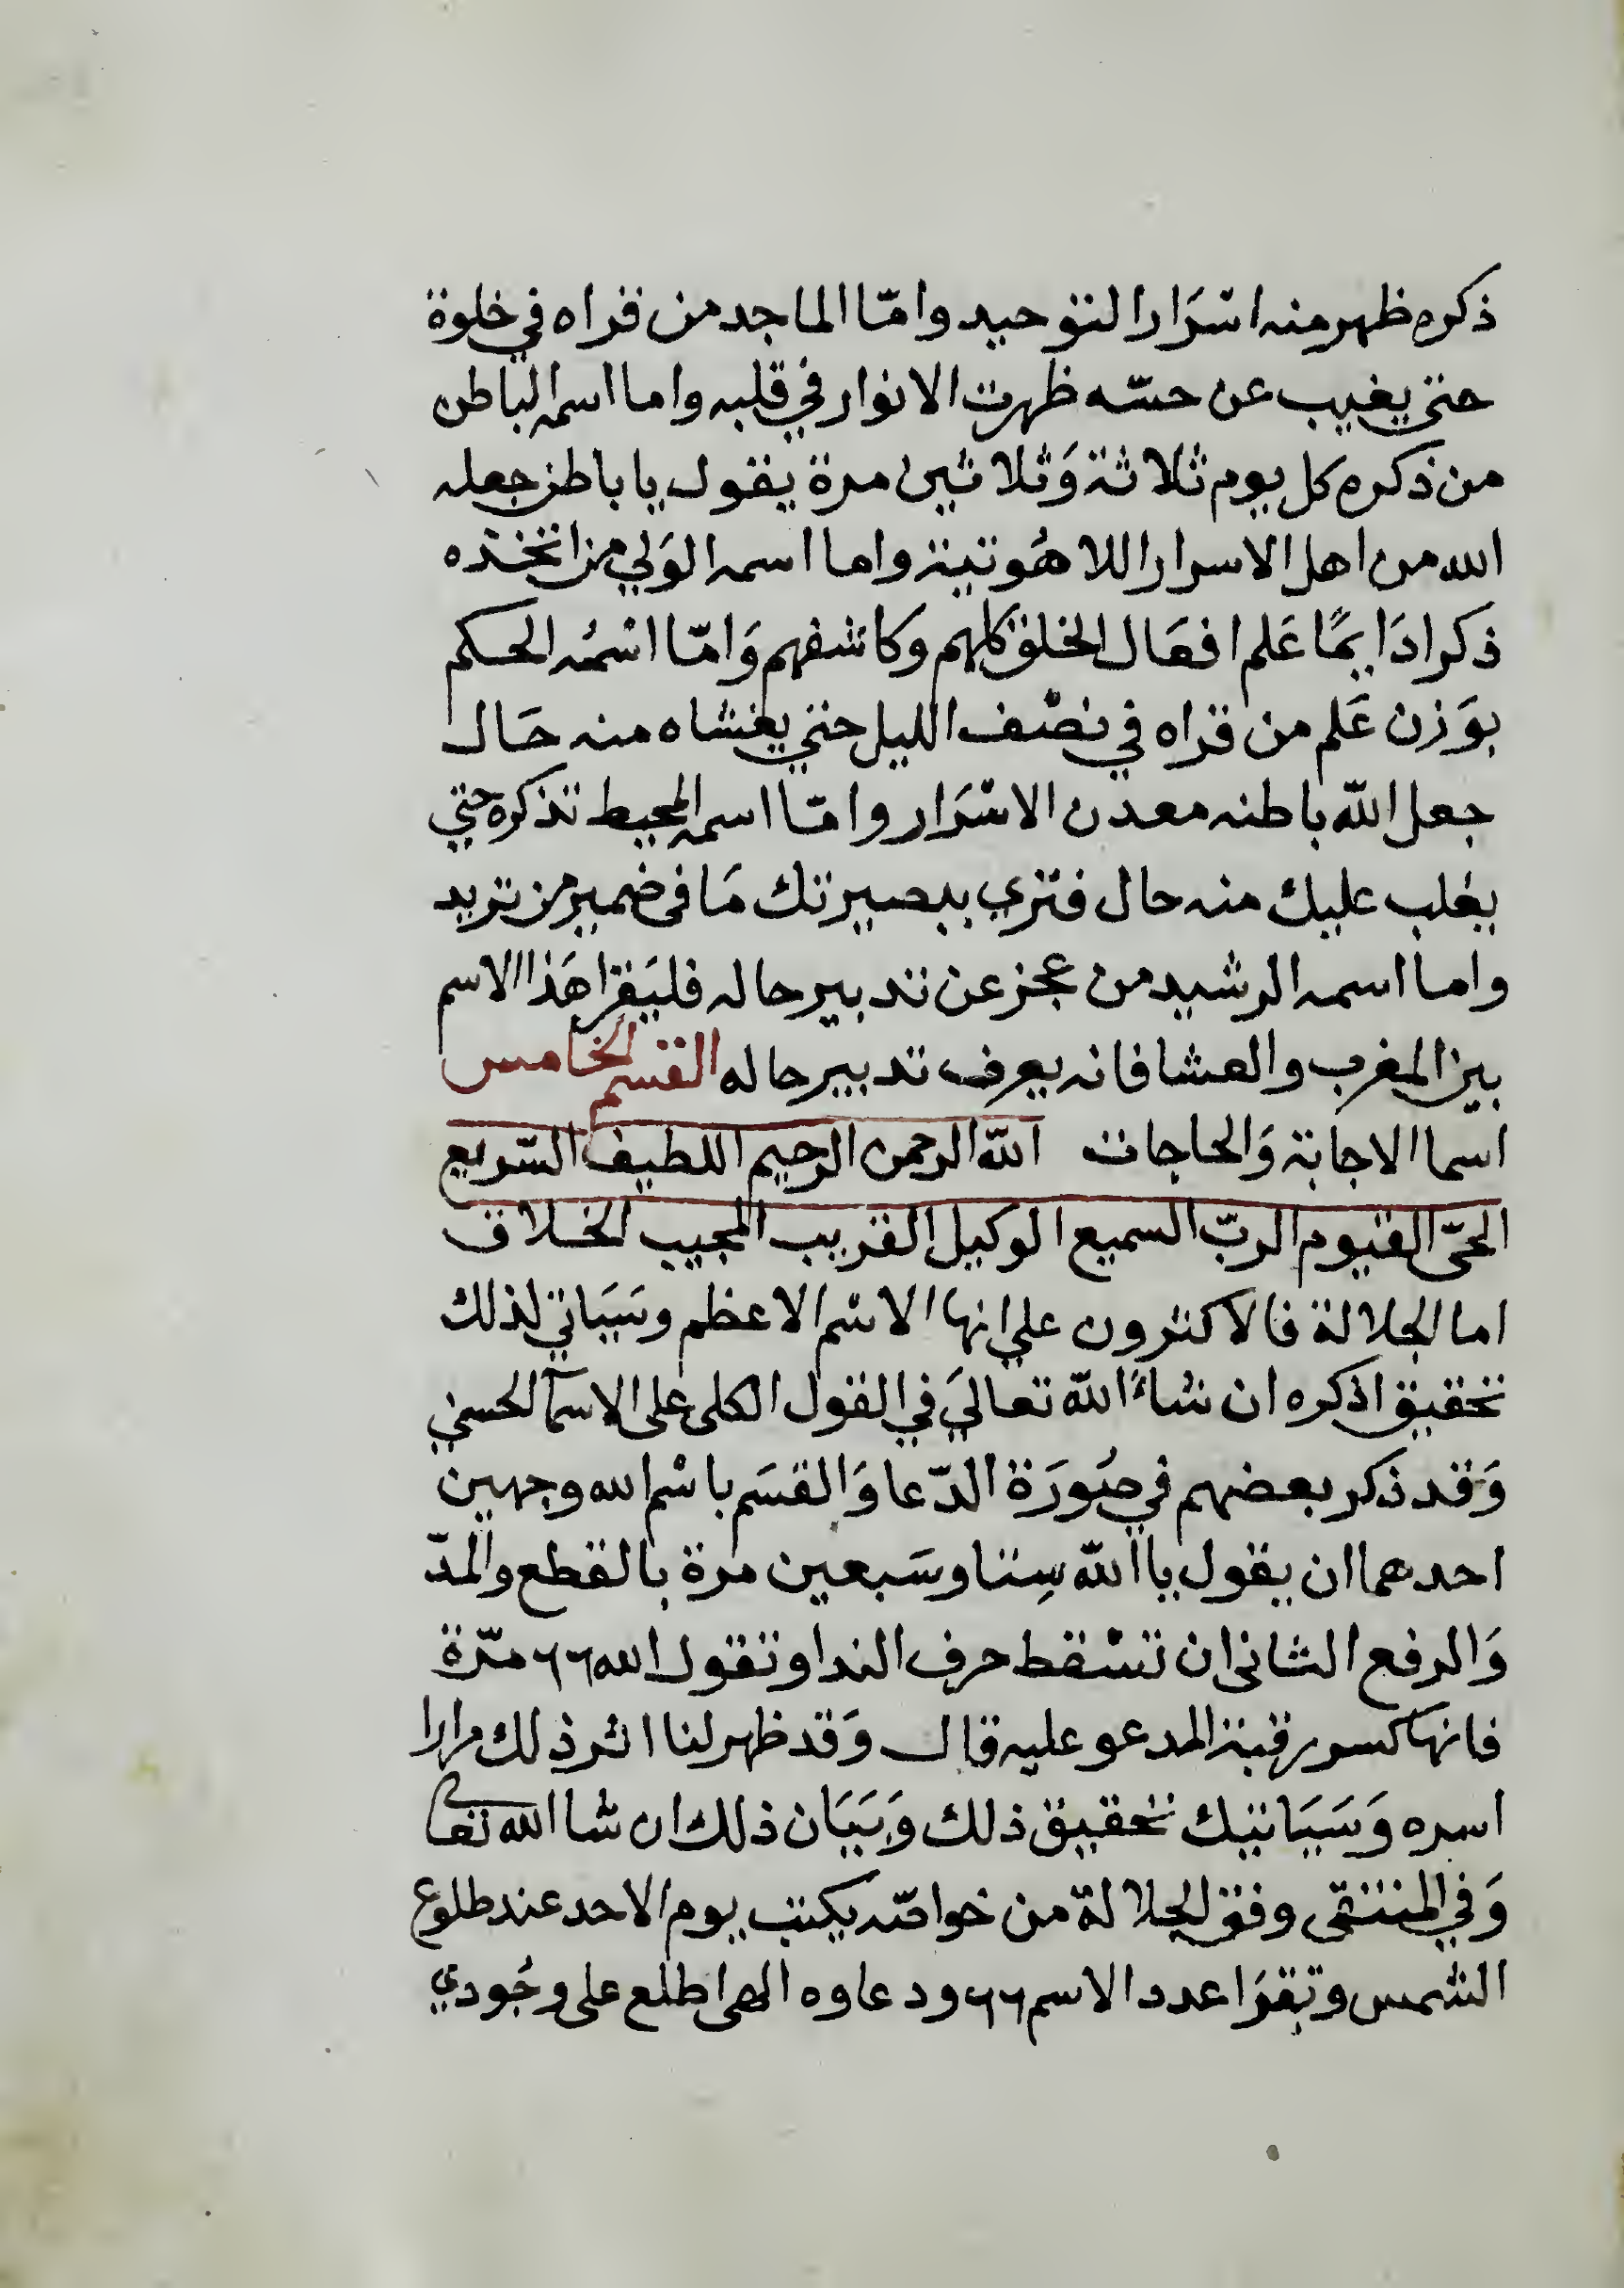 ذكره ظهر منه اسْرَار التوحيد وامّا الماجد من قراه في خلوة
حتي يغيب عن حسّه ظهرت الانوار في قلبه واما اسمه الباطن
من ذكره كل يوم ثلاثة وَثلاثين مرة يقول يا باطن جعله
الله من اهل الاسرار اللاهُوتية واما اسمه الوَلي من اتخذه
ذكرا دَايمًا عَلم افعَال الخلق كلهم وَكاشفهم وَامّا اسْمُه الحكم
بوَزن عَلم من قراه في نصْف الليل حتي يغشاه منه حَال
جعل الله باطنه معدن الاسْرَار وامّا اسمه المحيط تذكره حتي
يغلب عليك منه حال فتري ببصيرتك مَا فى ضمير من تريد
واما اسمه الرشيد من عجز عن تدبير حاله فليَقرا هَذا الاسم
بين المغرب والعشا فانه يعرف تدبير حاله القسم الخامس
اسما الاجابة وَالحاجات الله الرحمن الرحيم اللطيف السّريع
الحىّ القيوم الربّ السميع الوكيل القريب المجيب الخلاق
اما الجلالة فالاكثرون علي انها الاسْم الاعظم وسَيَاتي لذلك
تحقيق اذكره ان شاءَ الله تعاليَ في القول الكلى على الاسمآ الحسني
وَقد ذكر بعضهم في صُورَة الدّعا وَالقسَم باسْم الله وجهين
احدهما ان يقول يا الله سِتا وسَبعين مرة بالقطع والمدّ
وَالرفع الثانى ان تسْقط حرف الندا وتقول الله ٦٦ مرّة
فانها كسر رقبة المدعو عليه قال وَقد ظهر لنا اثر ذلك مرارا
اسره وَسَيَاتيك تحقيق ذلك وَبَيَان ذلك ان شا الله تعا
وَفي المنتقى وفق الجلالة من خواصّه يكتب يوم الاحد عند طلوع
الشمس وتقرَا عدد الاسم ٦٦ ودعاوه الهى اطلع على وجُودي